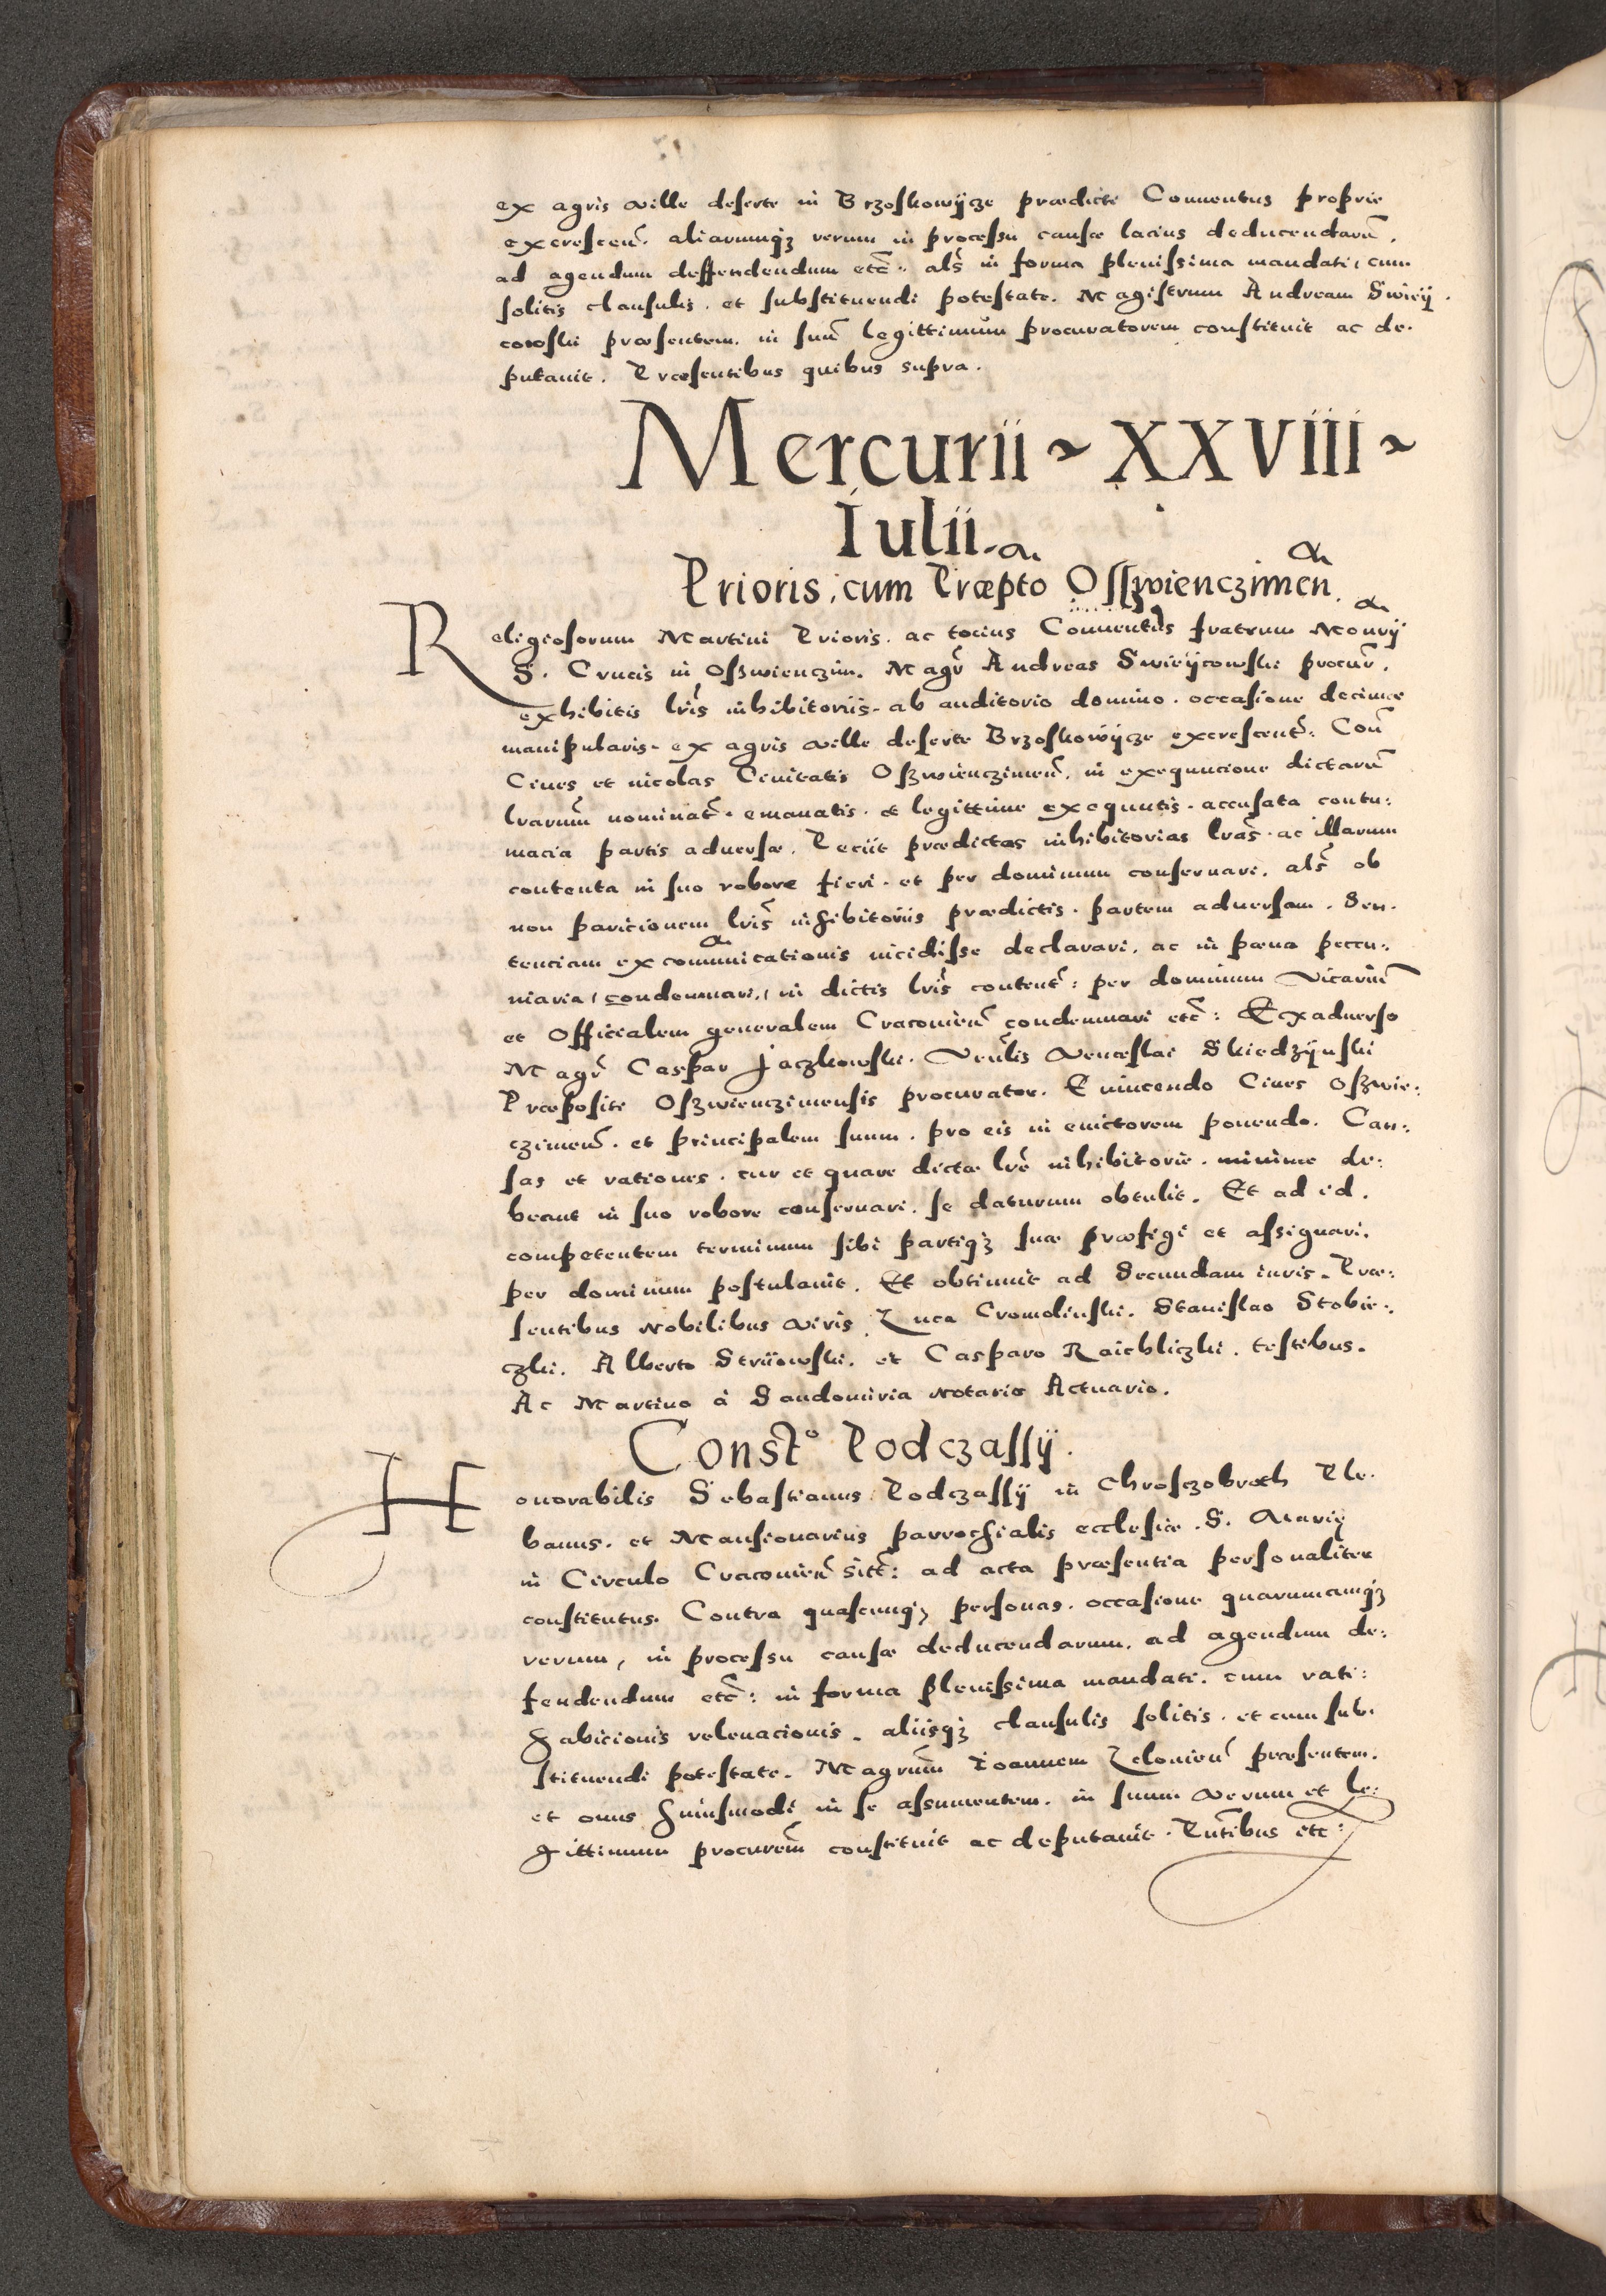 ex agris ville deserte in Brzoskowijcze prædicte Conuentus proprie
excrescen̄. aliarumqʒ rerum in processu causæ lacius deducendarū.
ad agendum deffendendum etc̄. als̄ in forma plenissima mandati, cum
solitis clausulis. et substituendi potestate. Magistrum Andream Swieij.
cowski præsentem. in suū legittimum procuratorem constituit ac de.
putauit. Præsentibus quibus supra.
Mercurii ~ XXVIII ~
Iulii.
Prioris, cum Præpto Osswienczimen̄.
Religiosorum Martini Prioris. ac tocius Conuentus fratrum Monrij
S. Crucis in Osswienczim. Magr̄ Andreas Swieijcowski procur̄.
exhibitis lr̄is inhibitoriis. ab auditorio domino. occasione decimæ
manipularis. ex agris ville deserte Brzoskowijcze excrescent̄: Con̄
Ciues et incolas Ciuitatis Osswiencziménn̄. in exequucione dictarū
lrarum̄ nominat̄. emanatis. et legittime exequutis. accusata contu:
macia partis aduersæ. Peciit prædictas inhibitorias lrās. ac illarum
contenta in suo robore fieri. et per dominum conseruari. als̄ ob
non paricionem lris̄ inhibitoriis prædictis. partem aduersam. Sen.
tenciam excommunicationis incidisse declarari. ac in pæna peccu:
niaria, condemnari, in dictis lris̄ content̄: per dominum Vicariū
et Officialem generalem Cracouien̄ condemnari etc̄: Ex aduerso
Magr̄ Caspar Jaczkowski. Ven̄lis Venceslai Skiedzijnski
Præpositi Osswienczimensis procurator. Euincendo Ciues Osswie:
czimen̄. et principalem suum. pro eis in euictorem ponendo. Cau:
sas et rationes. cur et quare dictæ lrē inhibitorie. minime de:
beant in suo robore conseruari. se daturum obtulit. Et ad id.
competentem terminum sibi partiqʒ suæ præfigi et assignari.
per dominum postulauit. Et obtinuit ad Secundam iuris. Præ:
sentibus nobilibus viris Luca Cromolinski. Stanislao Stobie:
czki. Alberto Strijowski. et Casparo Raichliczki. testibus.
Ac Martino à Sandomiria notario Actuario.
Constº Podczassij.
Honorabilis Sebastianus Podczassij in Chrosczobroth Ple.
banus. et Mansionarius parrochialis ecclesiæ. S. Marię
in Circulo Cracouien̄ sitt̄: ad acta præsentia personaliter
constitutus. Contra quascunqʒ personas. occasione quarumcunqʒ
rerum, in processu causæ deducendarum. ad agendum de:
fendendum etc̄: in forma plenissima mandati. cum rati:
habicionis releuacionis. aliisqʒ clausulis solitis. et cum sub.
stituendi potestate. Magrum̄ Ioannem Zelonien̄ præsentem.
et onus huiusmodi in se assumentem. in suum verum et le:
gittimum procurem̄ constituit ac deputauit. Pn̄tibus etc: